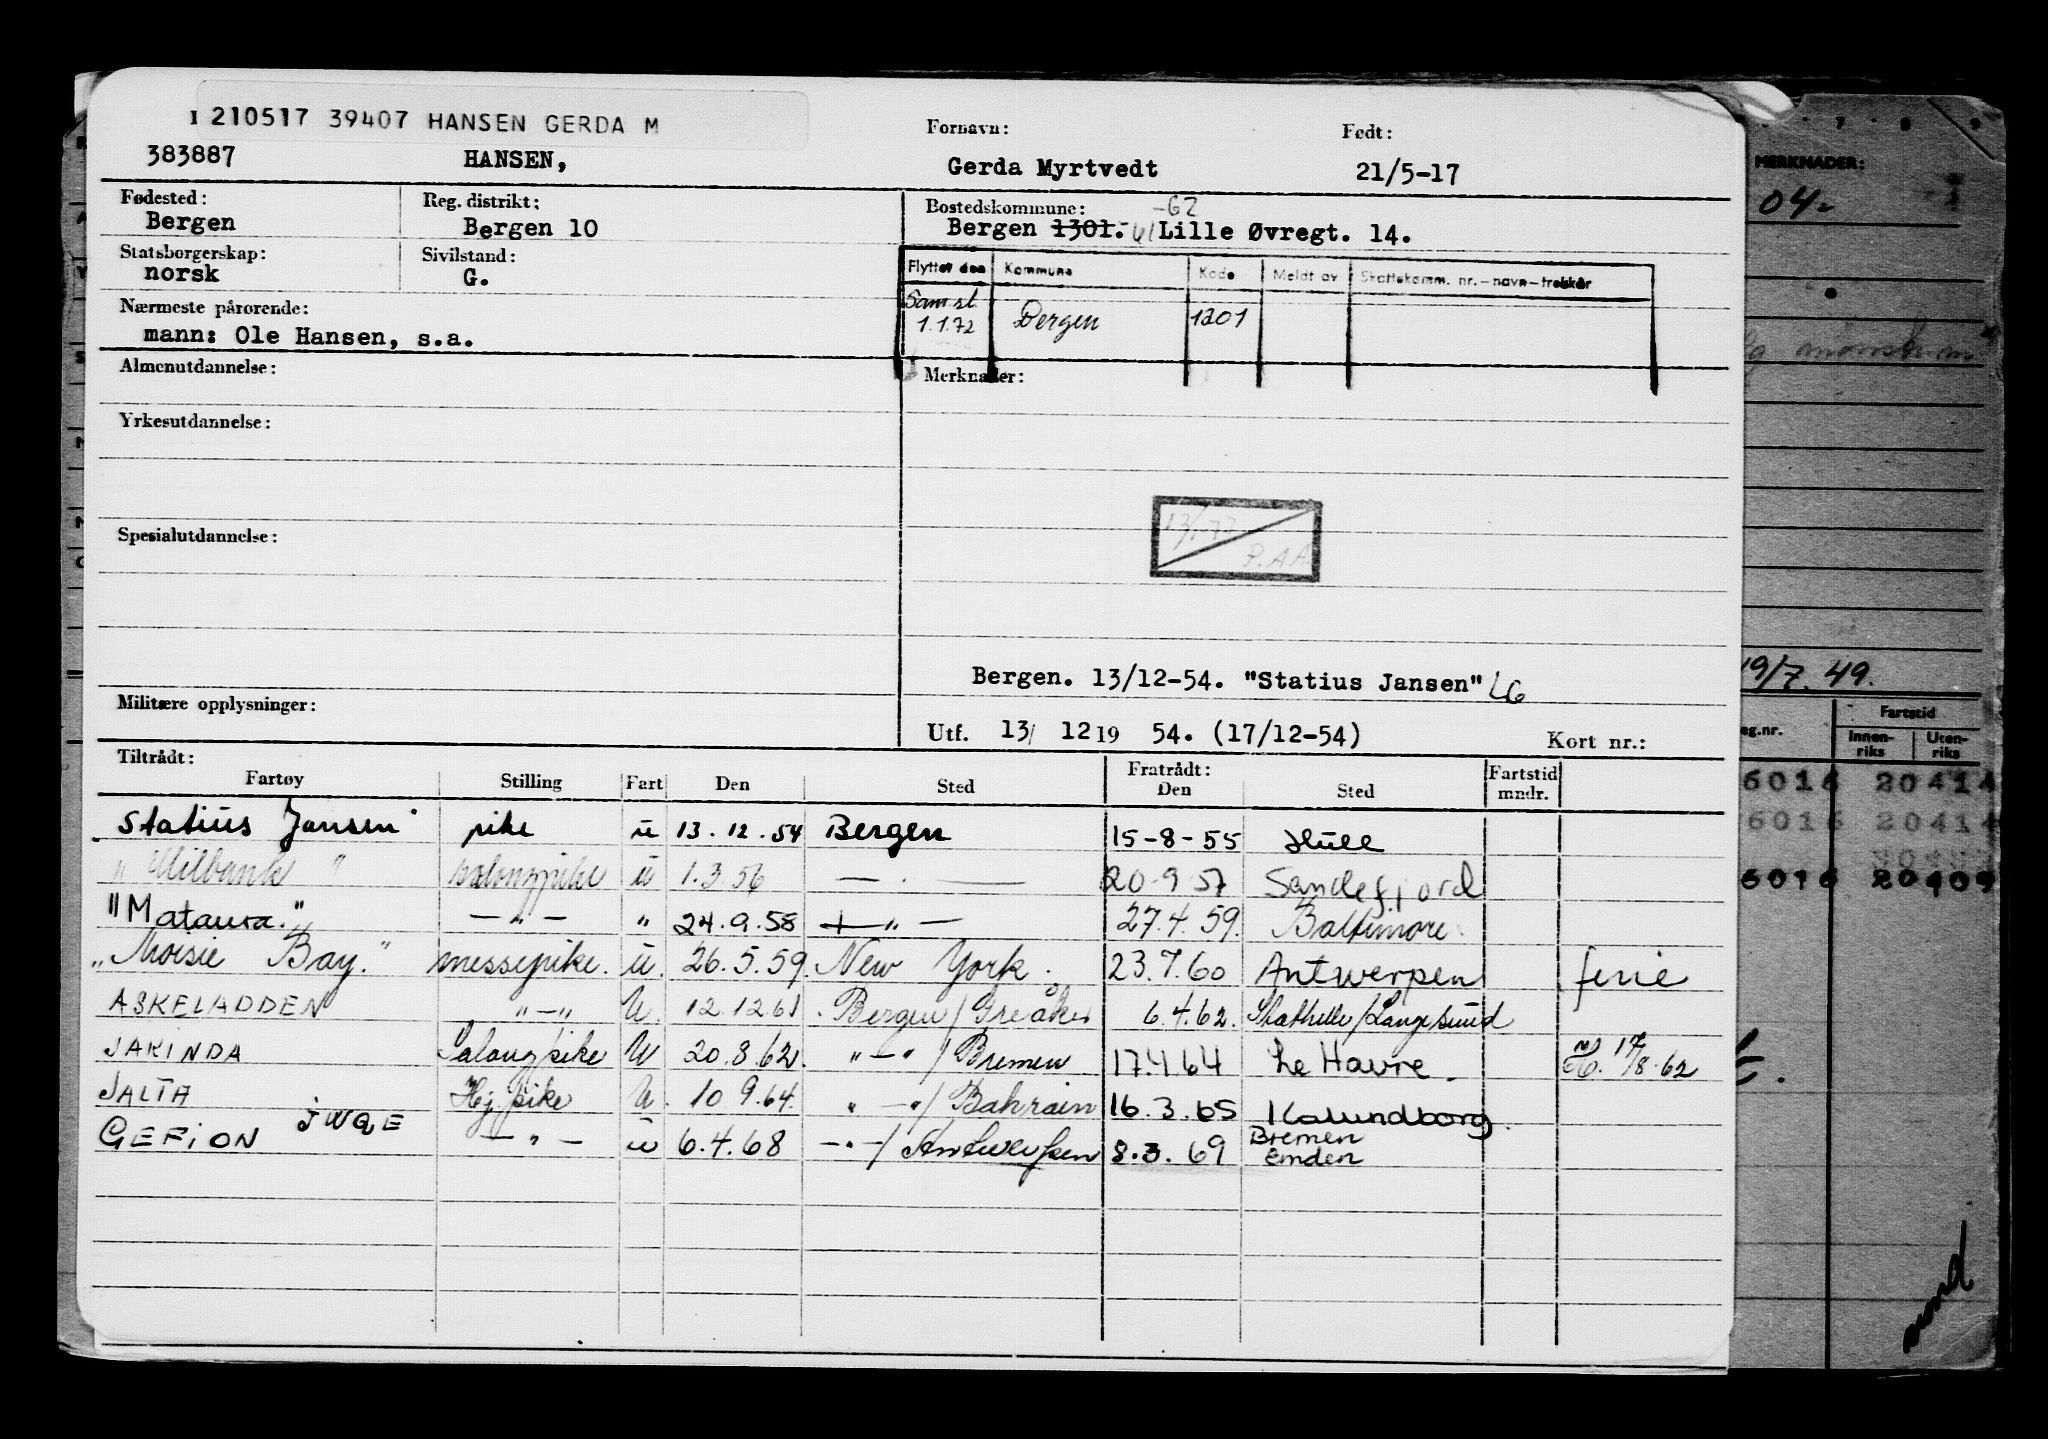 I 210517 39407 HANSEN GERDA M
383887 HANSEN,
Fornavn: Født:
Gerda Myrtvedt 21/5-17
Fødested: Reg. distrikt: Bostedskommune: -62
Bergen Bergen 10 Bergen 1301. 61 Lille Øvregt. 14.
Statsborgerskap: Sivilstand:
norsk G.
Flyttet den Kommune Kode Meldt av Skattekomm. nr.-navn-trekkår
Samst.
1.1.72 Bergen 1201
Nærmeste pårørende:
mann: Ole Hansen, s.a.
Almenutdannelse: Merknader:
Yrkesutdannelse:
P.AA
Spesialutdannelse:
Bergen. 13/12-54. "Statius Jansen" LG
Militære opplysninger:
Utf. 13/ 12 19 54. (17/12-54) Kort nr.:
Tiltrådt: Fratrådt:
Fartøy Stilling Fart Den Sted Den Sted Fartstid mndr.
Statius Jansen pike u 13.12.54 Bergen 15-8-55 Hull
"Milbank" salongpike u 1.3.56 — . — 20-9-57 Sandefjord
"Mataura." — " — " 24.9.58 — " — 27.4.59. Baltimore
"Moisie Bay." messepike. u. 26.5.59. New York. 23.7.60 Antwerpen ferie
ASKELADDEN " — " U. 12.12.61. Bergen/Greåker 6.4.62. Stathelle/Langesund
JAKINDA Salongpike U 20.8.62. " — " / Bremen 17.4.64 Le Havre. 17/8-62
JALTA Hj.pike U. 10 9.64. " — " / Bahrain 16.3.65 Kalundborg.
GEFION JWQE — " — u 6.4.68 — " — / Antwerpen 8.3.69 Bremen
Emden
MERKNADER:
04-
19/7.49.
eg.nr. Fartstid
Innen-riks Uten-riks
6016 20414
6016 20414
6016 20409